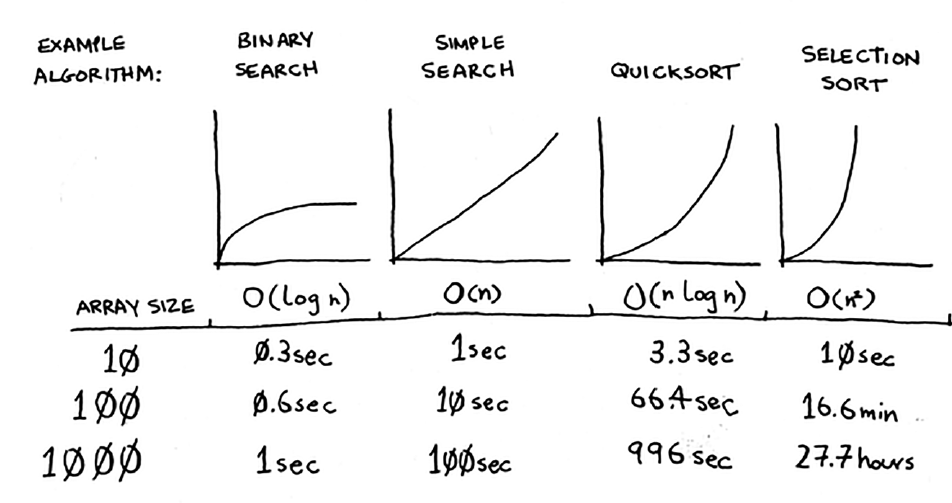 EXAMPLE ALGORITHM:
BINARY SEARCH
SIMPLE SEARCH
QUICKSORT
SELECTION SORT
ARRAY SIZE O(log n) O(n) O(n log n) O(n²)
10 0.3sec 1sec 3.3sec 10sec
100 0.6sec 10sec 66.4sec 16.6min
1000 1sec 100sec 996sec 27.7hours